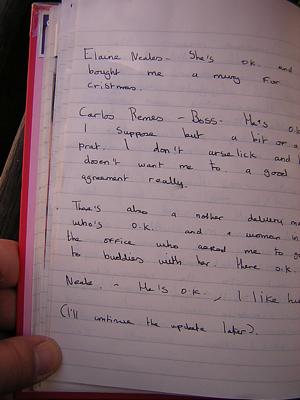 Elaine Neales - She's O.K. and
bought me a mug for
cristmas.
Carlos Remes - Boss - He's O.K
I suppose but a bit of a
prat. I don't arse lick and
doesn't want me to. a good
agreement really.
There's also a nother delivery
who's O.K. and a woman in
the office who asked me to go
to buddies with her. there O.K.
Neale. - He's O.K., I like
(I'll continue the update later).